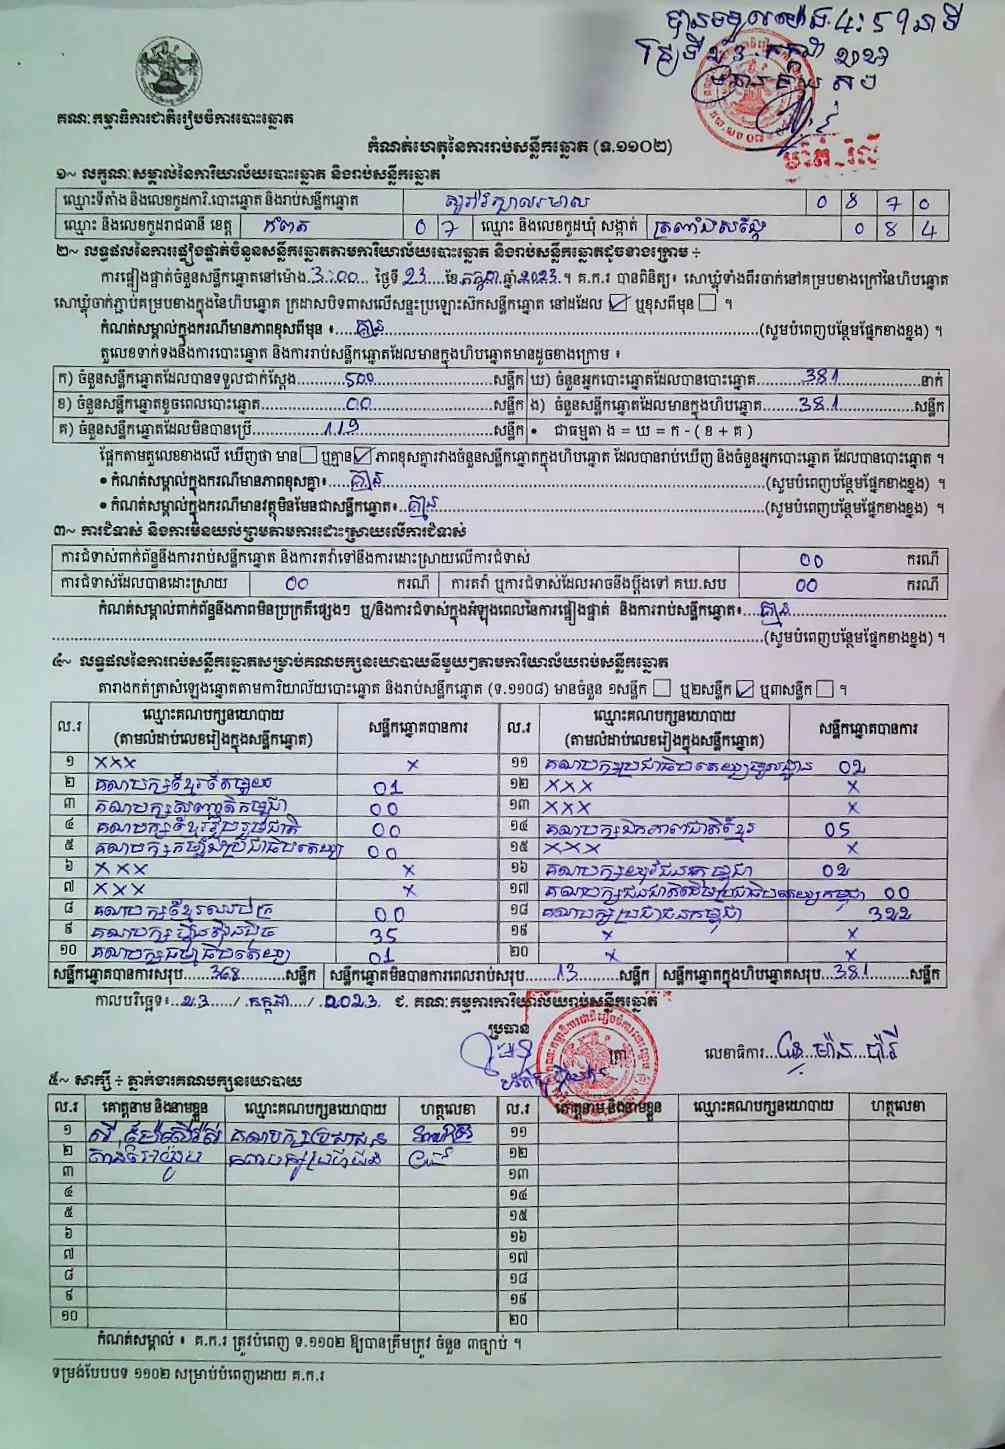 បានទទួលម៉ោង 4:59 នាទី
ថ្ងៃទី 23 កក្កដា 2023
គណៈកម្មាធិការជាតិរៀបចំការបោះឆ្នោត
កំណត់ហេតុនៃការរាប់សន្លឹកឆ្នោត (ទ.១១០២)
១~ លក្ខណៈសម្គាល់នៃការិយាល័យបោះឆ្នោត និងរាប់សន្លឹកឆ្នោត
ឈ្មោះទីតាំង និងលេខកូដការិ.បោះឆ្នោត និងរាប់សន្លឹកឆ្នោត 0 8 7 0
ឈ្មោះ និងលេខកូដរាជធានី ខេត្ត កំពត 0 7 ឈ្មោះ និងលេខកូដឃុំ សង្កាត់ ត្រពាំងសង្កែ 0 8 4
២~ លទ្ធផលនៃការផ្ទៀងផ្ទាត់ចំនួនសន្លឹកឆ្នោតតាមការិយាល័យបោះឆ្នោត និងរាប់សន្លឹកឆ្នោតដូចខាងក្រោម ÷
ការផ្ទៀងផ្ទាត់ចំនួនសន្លឹកឆ្នោតនៅម៉ោង 3:00 ថ្ងៃទី 23 ខែ កក្កដា ឆ្នាំ 2023 ។ គ.ក.រ បានពិនិត្យ៖ សោឃ្លុំទាំងពីរចាក់នៅគម្របខាងក្រៅនៃហិបឆ្នោត
សោឃ្លុំចាក់ភ្ជាប់គម្របខាងក្នុងនៃហិបឆ្នោត ក្រដាសបិទពាសលើសន្ទះប្រឡោះស៊កសន្លឹកឆ្នោត នៅដដែល ☑ ឬខុសពីមុន ☐ ។
កំណត់សម្គាល់ក្នុងករណីមានភាពខុសពីមុន ៖ គ្មាន (សូមបំពេញបន្ថែមផ្នែកខាងខ្នង) ។
តួលេខទាក់ទងនឹងការបោះឆ្នោត និងការរាប់សន្លឹកឆ្នោតដែលមានក្នុងហិបឆ្នោតមានដូចខាងក្រោម ៖
ក) ចំនួនសន្លឹកឆ្នោតដែលបានទទួលជាក់ស្តែង 500 សន្លឹក ឃ) ចំនួនអ្នកបោះឆ្នោតដែលបានបោះឆ្នោត 381 នាក់
ខ) ចំនួនសន្លឹកឆ្នោតខូចពេលបោះឆ្នោត 00 សន្លឹក ង) ចំនួនសន្លឹកឆ្នោតដែលមានក្នុងហិបឆ្នោត 381 សន្លឹក
គ) ចំនួនសន្លឹកឆ្នោតដែលមិនបានប្រើ 119 សន្លឹក • ជាធម្មតា ង = ឃ = ក - ( ខ + គ )
ផ្អែកតាមតួលេខខាងលើ ឃើញថា មាន ☐ ឬគ្មាន ☑ ភាពខុសគ្នារវាងចំនួនសន្លឹកឆ្នោតក្នុងហិបឆ្នោត ដែលបានរាប់ឃើញ និងចំនួនអ្នកបោះឆ្នោត ដែលបានបោះឆ្នោត ។
• កំណត់សម្គាល់ក្នុងករណីមានភាពខុសគ្នា៖ គ្មាន (សូមបំពេញបន្ថែមផ្នែកខាងខ្នង) ។
• កំណត់សម្គាល់ក្នុងករណីមានវត្ថុមិនមែនជាសន្លឹកឆ្នោត៖ គ្មាន (សូមបំពេញបន្ថែមផ្នែកខាងខ្នង) ។
៣~ ការជំទាស់ និងការមិនយល់ព្រមតាមការដោះស្រាយលើការជំទាស់
ការជំទាស់ពាក់ព័ន្ធនឹងការរាប់សន្លឹកឆ្នោត និងការតវ៉ាទៅនឹងការដោះស្រាយលើការជំទាស់ 00 ករណី
ការជំទាស់ដែលបានដោះស្រាយ 00 ករណី ការតវ៉ា ឬការជំទាស់ដែលអាចនឹងប្តឹងទៅ គឃ.សប 00 ករណី
កំណត់សម្គាល់ពាក់ព័ន្ធនឹងភាពមិនប្រក្រតីផ្សេងៗ ឬ/និងការជំទាស់ក្នុងអំឡុងពេលនៃការផ្ទៀងផ្ទាត់ និងការរាប់សន្លឹកឆ្នោត៖ គ្មាន
(សូមបំពេញបន្ថែមផ្នែកខាងខ្នង) ។
៤~ លទ្ធផលនៃការរាប់សន្លឹកឆ្នោតសម្រាប់គណបក្សនយោបាយនីមួយៗតាមការិយាល័យរាប់សន្លឹកឆ្នោត
តារាងកត់ត្រាសំឡេងឆ្នោតតាមការិយាល័យបោះឆ្នោត និងរាប់សន្លឹកឆ្នោត (ទ.១១០៨) មានចំនួន ១សន្លឹក ☐ ឬ២សន្លឹក ☑ ឬ៣សន្លឹក ☐ ។
ល.រ ឈ្មោះគណបក្សនយោបាយ (តាមលំដាប់លេខរៀងក្នុងសន្លឹកឆ្នោត) សន្លឹកឆ្នោតបានការ ល.រ ឈ្មោះគណបក្សនយោបាយ (តាមលំដាប់លេខរៀងក្នុងសន្លឹកឆ្នោត) សន្លឹកឆ្នោតបានការ
១ xxx x ១១ គណបក្សប្រជាធិបតេយ្យមូលដ្ឋាន 02
២ គណបក្សខ្មែរតែមួយ 01 ១២ xxx x
៣ គណបក្សសញ្ជាតិកម្ពុជា 00 ១៣ xxx x
៤ គណបក្សខ្មែររួបរួមជាតិ 00 ១៤ គណបក្សឯកភាពជាតិខ្មែរ 05
៥ គណបក្សកម្លាំងប្រជាធិបតេយ្យ 00 ១៥ xxx x
៦ xxx x ១៦ គណបក្សយុវជនកម្ពុជា 02
៧ xxx x ១៧ គណបក្សជនជាតិដើមប្រជាធិបតេយ្យកម្ពុជា 00
៨ គណបក្សខ្មែរឈប់ក្រ 00 ១៨ គណបក្សប្រជាជនកម្ពុជា 322
៩ គណបក្សហ្វ៊ុនស៊ិនប៉ិច 35 ១៩ x x
១០ គណបក្សធម្មាធិបតេយ្យ 01 ២០ x x
សន្លឹកឆ្នោតបានការសរុប 368 សន្លឹក សន្លឹកឆ្នោតមិនបានការពេលរាប់សរុប 13 សន្លឹក សន្លឹកឆ្នោតក្នុងហិបឆ្នោតសរុប 381 សន្លឹក
កាលបរិច្ឆេទ៖ 23 / កក្កដា / 2023 ជ. គណៈកម្មការការិយាល័យរាប់សន្លឹកឆ្នោត
ប្រធាន
ត្រា
លេខាធិការ ម៉ាន ប៉ារី
៥~ សាក្សី ÷ ភ្នាក់ងារគណបក្សនយោបាយ
ល.រ គោត្តនាម និងនាមខ្លួន ឈ្មោះគណបក្សនយោបាយ ហត្ថលេខា ល.រ គោត្តនាម និងនាមខ្លួន ឈ្មោះគណបក្សនយោបាយ ហត្ថលេខា
១ គណបក្សប្រជាជន ១១
២ ១២
៣ ១៣
៤ ១៤
៥ ១៥
៦ ១៦
៧ ១៧
៨ ១៨
៩ ១៩
១០ ២០
កំណត់សម្គាល់ ៖ គ.ក.រ ត្រូវបំពេញ ទ.១១០២ ឱ្យបានត្រឹមត្រូវ ចំនួន ៣ច្បាប់ ។
ទម្រង់បែបបទ ១១០២ សម្រាប់បំពេញដោយ គ.ក.រ